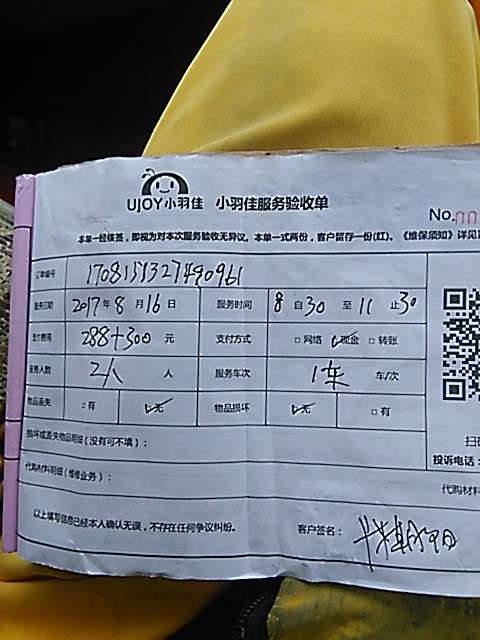 UJOY小羽佳 小羽佳服务验收单
No.
本单一经核签，即视为对本次服务验收无异议。本单一式两份，客户留存一份(红)。《维保须知》详见
订单编号 1708151327490961
服务日期 2017年8月16日 服务时间 8自30至11止30
支付费用 288+300元 支付方式 □网络 ☑现金 □转账
服务人数 2人 人 服务车次 1车 车/次
物品丢失 □有 ☑无 物品损坏 ☑无 □有
损坏或丢失物品明细（没有可不填）：
投诉电话：
代购材料明细（维修业务）： 代购材料
以上填写信息已经本人确认无误，不存在任何争议纠纷。 客户签名：